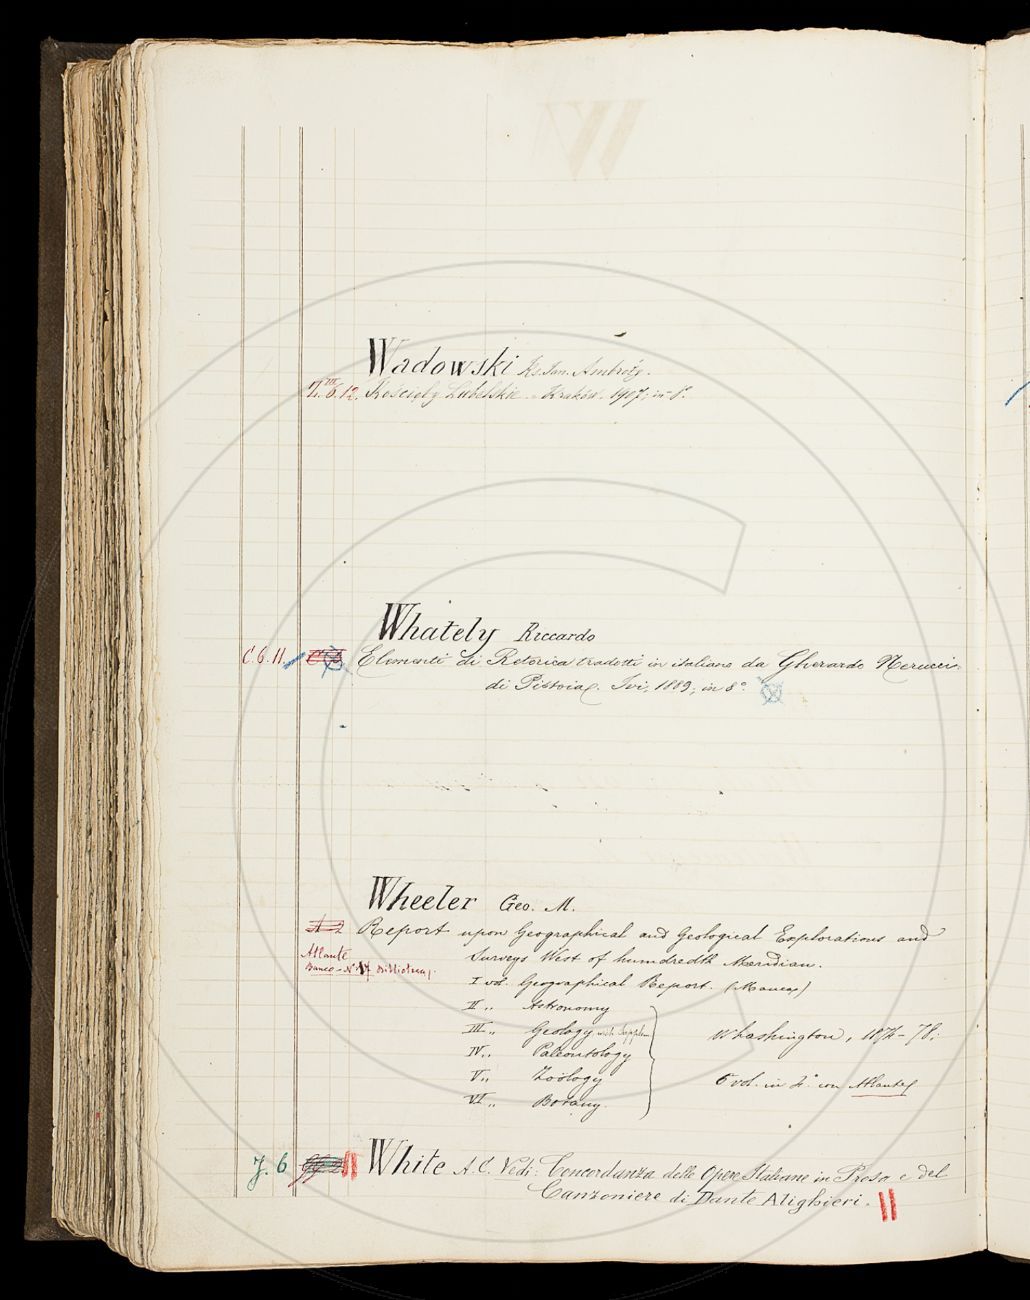 Wadowski Ks. Jan. Ambroży.
12. Kościoły Lubelskie. Kraków. 1907; in-8°.
Whately Riccardo
C. 6. 11. Elementi di Retorica tradotti in italiano da Gherardo Nerucci
di Pistoia. Ivi, 1889, in 8°.
Wheeler Geo. M.
A 2 Report upon Geographical and Geological Explorations and
Atlante Surveys West of humdredth Meridian.
Banco - N. 17 Biblioteca
I vol. Geographical Report. (Manca)
II „ Astronomy
III „ Geology with Supplem
Whashington, 1874-78;
IV „ Paleontology
V „ Zoölogy
6 vol. in 4.° con Atlante
VI „ Botany.
J. 6 White A. C. Vedi: Concordanza delle Opere Italiane in Prosa e del
Canzoniere di Dante Alighieri.